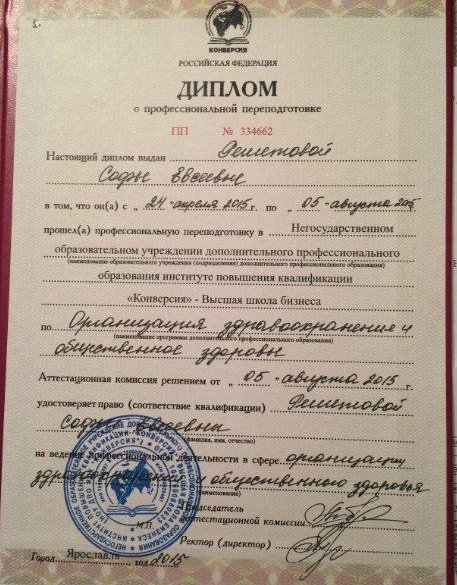 КОНВЕРСИЯ
РОССИЙСКАЯ ФЕДЕРАЦИЯ
ДИПЛОМ
о профессиональной переподготовке
ПП № 334662
Настоящий диплом выдан Решетовой
Софье Евсеевне
в том, что он(а) с „24“ апреля 2015 г. по „05“ августа 2015
прошел(а) профессиональную переподготовку в Негосударственном
образовательном учреждении дополнительного профессионального
(наименование образовательного учреждения (подразделения) дополнительного профессионального образования)
образования институте повышения квалификации
«Конверсия» - Высшая школа бизнеса
по Организация здравоохранение и
(наименование программы дополнительного профессионального образования)
общественное здоровье
Аттестационная комиссия решением от „05“ августа 2015 г.
удостоверяет право (соответствие квалификации) Решетовой
Софьи Евсеевны
(фамилия, имя, отчество)
на ведение профессиональной деятельности в сфере организации
здравоохранения и общественного здоровья
Председатель
аттестационной комиссии
М.П.
Ректор (директор)
Город Ярославль год 2015